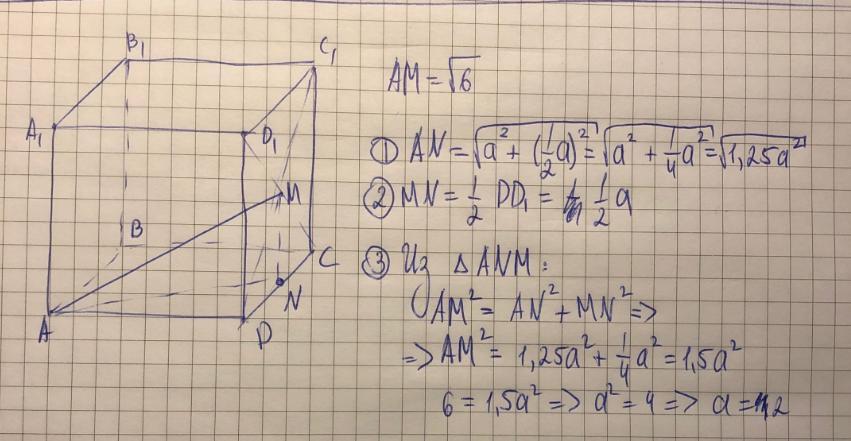 B₁
C₁
A₁
D₁
M
B
C
N
A
D
AM = √6
① AN = √(a² + (1/2 a)²) = √(a² + 1/4 a²) = √(1,25a²)
② MN = 1/2 DD₁ = 1/2 a
③ Из △ANM:
AM² = AN² + MN² =>
=> AM² = 1,25a² + 1/4 a² = 1,5a²
6 = 1,5a² => a² = 4 => a = 2